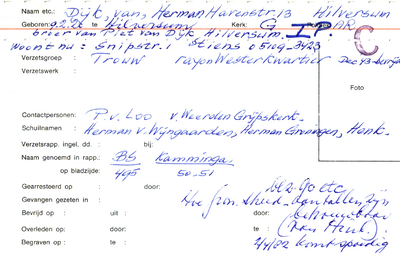 Naam etc.: Dijk, van, Herman Havenstr. 13 Hilversum
Geboren: 9.2.26 te Hilversum Kerk: G I.P. C
broer van Piet van Dijk Hilversum.
Woont nu: Snipstr. 1 Stiens 05109-3423
Verzetsgroep : Trouw rayon Westerkwartier Dec 43-
Verzetswerk :
Foto
Contactpersonen: P. v. Loo v. Weerden Grijpskerk.
Schuilnamen : Herman v. Wijngaarden, Herman Groningen, Henk.
Verzetsrapp. ingel. dd. : bij:
Naam genoemd in rapp.: BS Kamminga
op bladzijde: 495 50-51
Gearresteerd op : door:
Gevangen gezeten in :
Bevrijd op : uit : door:
Overleden op: door: te :
Begraven op : te : 2/4/82 komt spoedig